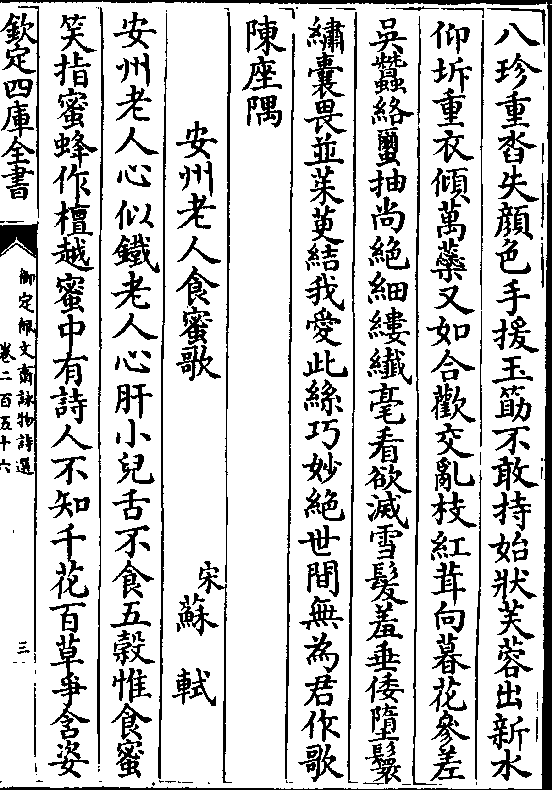 八珍重沓失顔色手援玉筯不敢持始狀芙蓉出新水
仰坼重衣傾萬蘂又如合歡交亂枝紅茸向暮花參差
吳蠶絡璽抽尚絶細縷纎毫看欲滅雪髮羞垂倭墮鬟
繡囊畏並茱萸結我愛此絲巧妙絶世間無為君作歌
陳座隅
安州老人食蜜歌
宋蘇軾
安州老人心似鐵老人心肝小兒舌不食五榖惟食蜜
笑指蜜蜂作檀越蜜中有詩人不知千花百草爭含姿
欽定四庫全書
御定佩文齋詠物詩選
卷二百五十六
三